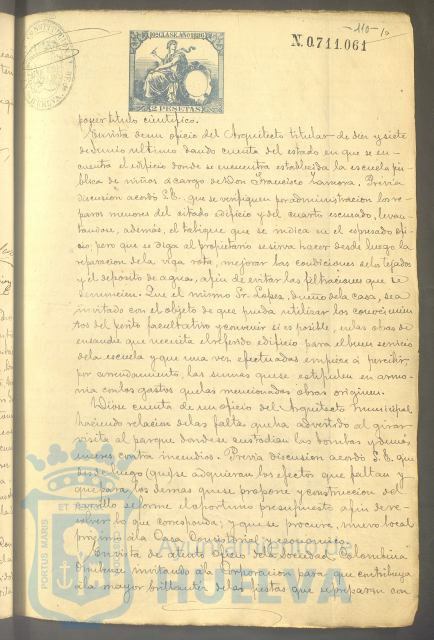 -110-
10ª CLASE. AÑO 1886
2 PESETAS
N.0.711.061
poseer titulo cientifico.
En vista de un oficio del Arquitecto titular de diez y siete
de Junio ultimo dando cuenta del estado en que se en-
cuentra el edificio donde se encuentra establecida la escuela pú-
blica de niños á cargo de Don Francisco Zamora. Previa
discusion acordó S.E. que se verifiquen por administracion los re-
paros menores del citado edificio y del cuarto escusado, levan-
tandose, además, el tabique que se indica en el espresado ofi-
cio; pero que se diga al propietario se sirva hacer desde luego la
reparacion de la viga rota, mejorar las condiciones de los tejados
y el depósito de agua, afin de evitar las filtraciones que se
denuncian. Que el mismo Sr. Lopez, dueño de la casa, sea
invitado con el objeto de que pueda utilizar los conocimien-
tos del perito facultativo y convenir si es posible, en las obras de
ensanche que necesita el referido edificio para el buen servicio
de la escuela y que una vez efectuadas empiece á percibir
por arrendamiento, las sumas que se estipulen en armo-
nia con los gastos que las mencionadas obras originen.
Diose cuenta de un oficio del Arquitecto municipal
haciendo relacion de las faltas que ha advertido al girar
visita al parque donde se custodian las bombas y demás
enseres contra incendios. Previa discusion acordó S.E. que
desde luego (que) se adquieran los efectos que faltan y
que para los demas que se propone y construccion del
se forme el oportuno presupuesto afin de re-
solver lo que corresponda; y que se procure, nuevo local
proximo á la Casa Consistorial y economico.
En vista de atento oficio de la Sociedad Colombina
Onubense invitando á la Corporacion para que contribuya
á la mayor brillantez de las fiestas que se preparan con
PORTUS MARIS
ET
Ayuntamiento de
HUELVA